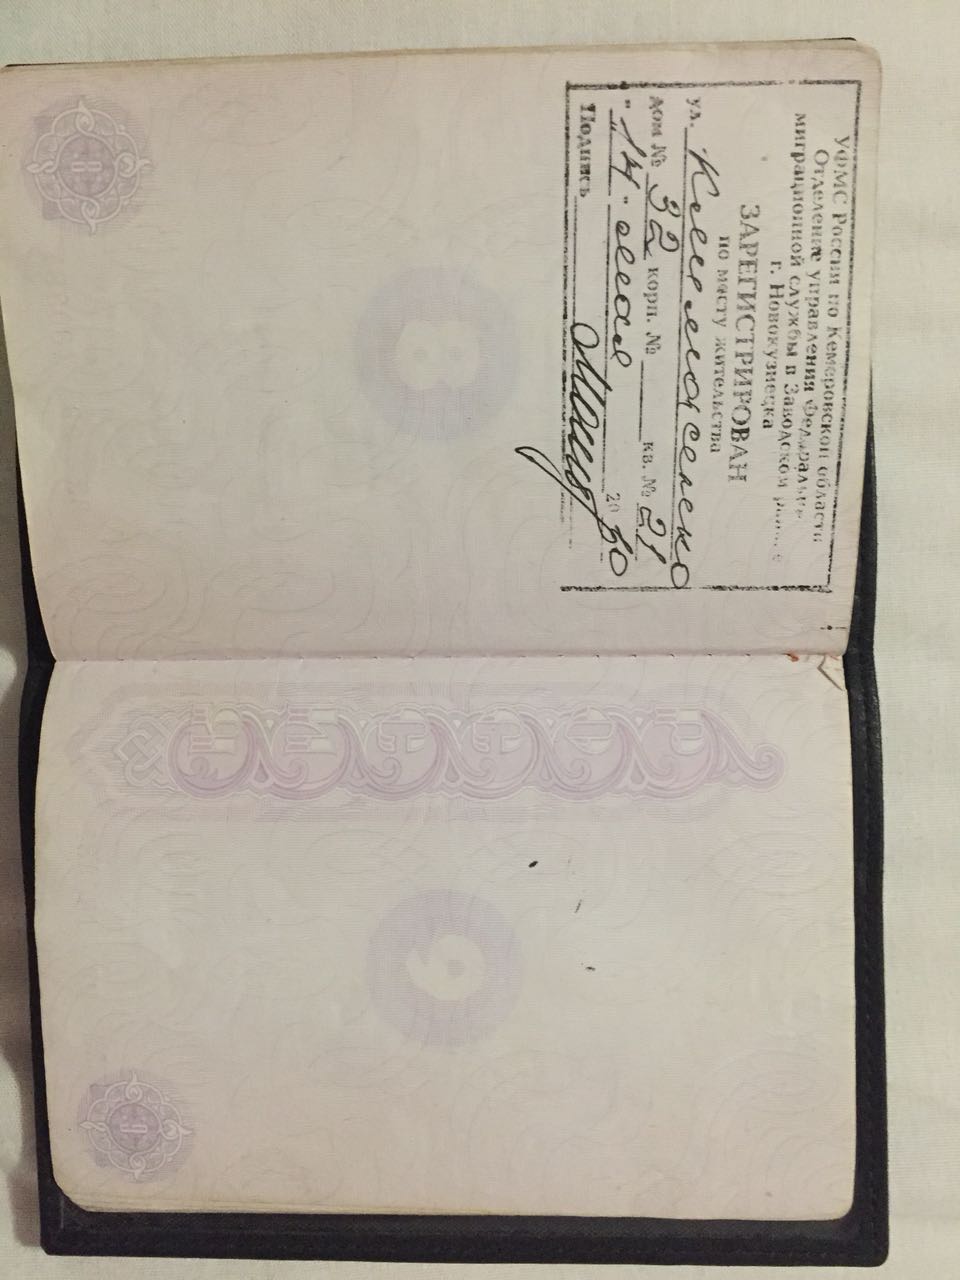 УФМС России по Кемеровской области
Отделение управления Федеральн
миграционной службы в Заводском
г. Новокузнецка
ЗАРЕГИСТРИРОВАН
по месту жительства
ул.
дом № 32 корп. № кв. № 21
"14" мая 20 10
Подпись
6